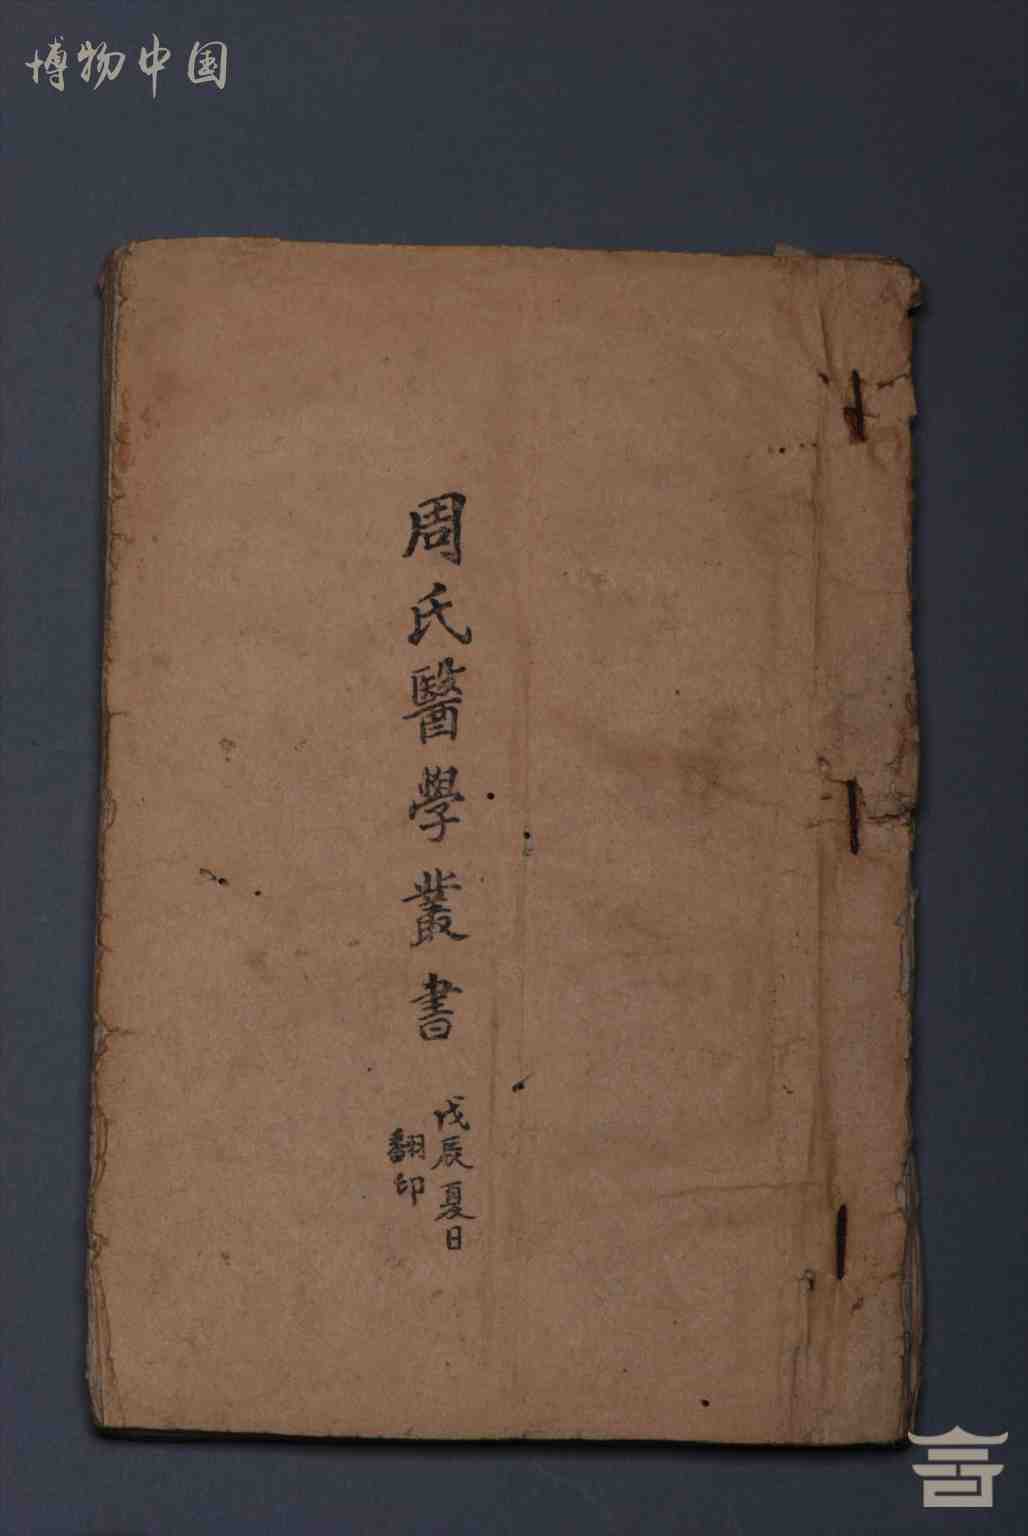 博物中国
周氏醫學叢書
戊辰夏日
翻印